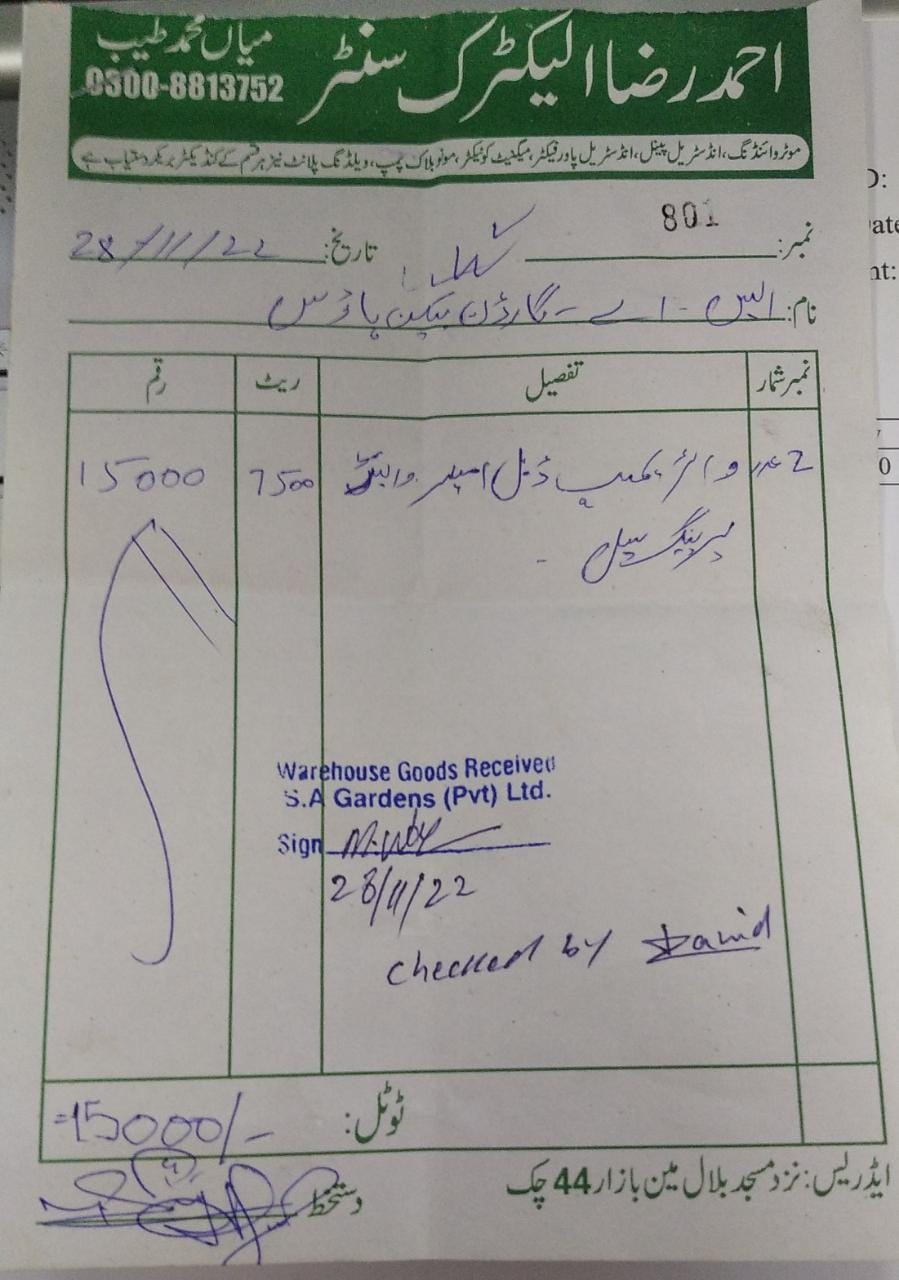 احمد رضا الیکٹرک سنٹر
میاں محمد طیب
0300-8813752
موٹر وائنڈنگ، انڈسٹریل پینل، انڈسٹریل پاور فیکٹر، میگنیٹ کونیکٹر، مونو بلاک پمپ، ویلڈنگ پلانٹ نیز ہر قسم کے کنڈیکٹر بریکر دستیاب ہے
نمبر: 801
تاریخ: 28/11/22
نام: ایس - اے - گارڈن بیکن ہاؤس
نمبر شمار تفصیل ریٹ رقم
2 عدد واٹر پمپ ڈبل امپیلر 7500 15000
بیرنگ سیل
Warehouse Goods Received
S.A Gardens (Pvt) Ltd.
Sign
28/11/22
checked by
ٹوٹل: =15000/-
دستخط
ایڈریس: نزد مسجد بلال مین بازار 44 چک